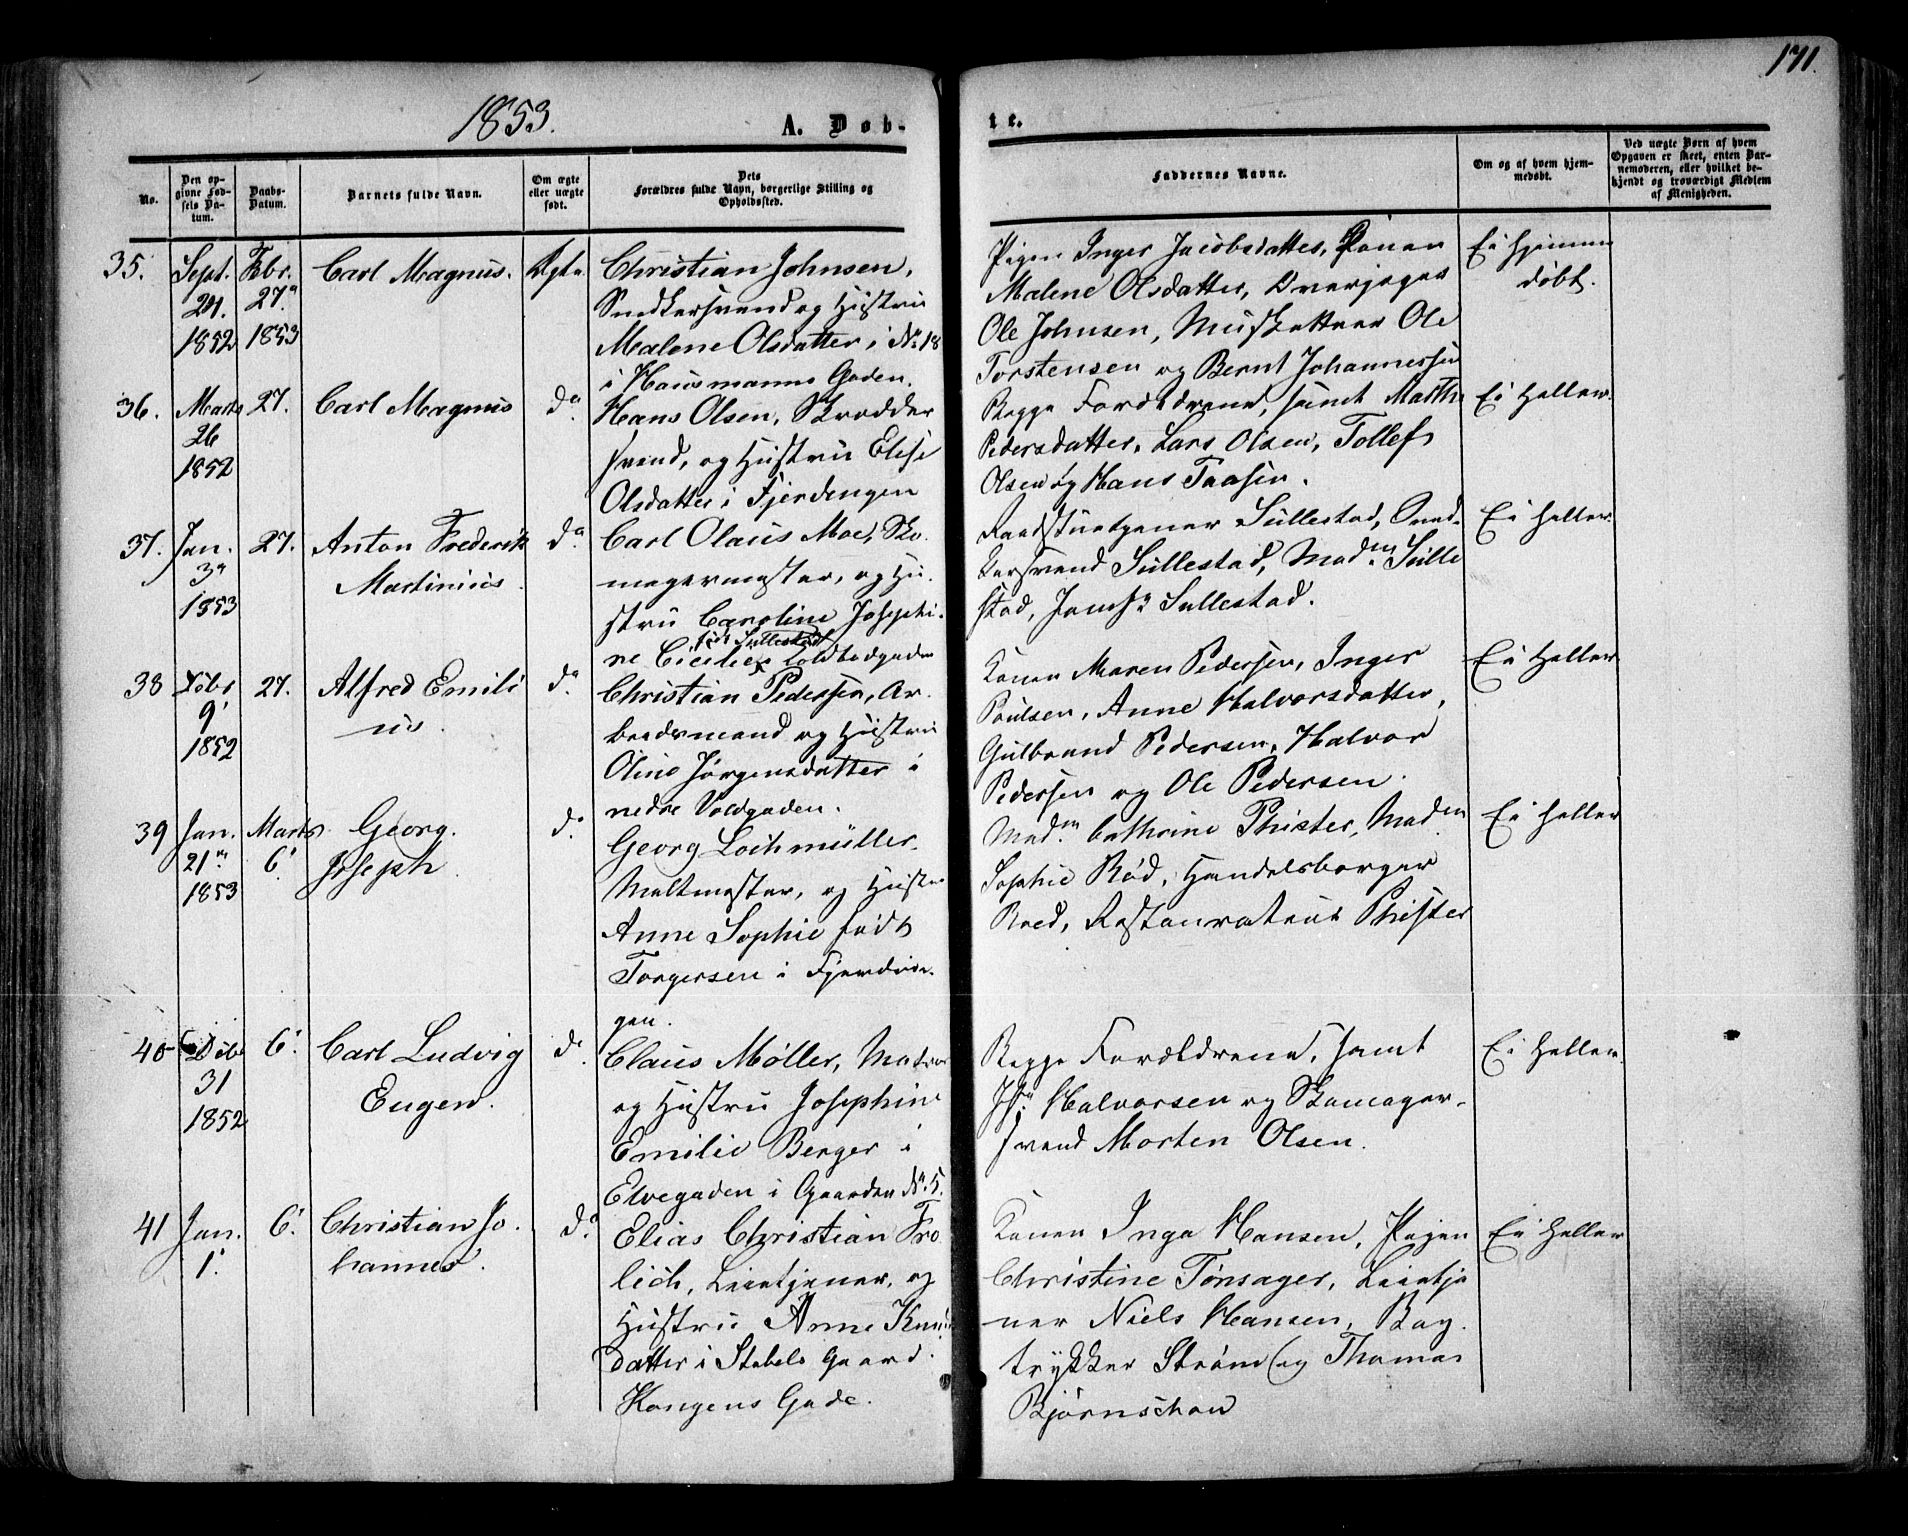 171.
1853.
A. Døb-
te.
No.
Den op-
givne Fød-
sels Da-
tum.
Daabs-
Datum.
Barnets fulde Navn.
Om ægte
eller uægte
født.
Dets
Forældres fulde Navn, borgerlige Stilling og
Opholdssted.
Faddernes Navne.
Om og af hvem hjem-
medøbt.
Ved uægte Børn af hvem
Opgaven er skeet, enten Bar-
nemoderen, eller hvilket be-
kjendt og troværdigt Medlem
af Menigheden.
35.
Sept.
24.
1852
Febr.
27.
1853
Carl Magnus.
Ægte
Christian Johnsen,
Snedkersvend og Hustru
Malene Olsdatter i No 18
i Hausmanns Gaden.
Pigen Inger Jacobsdatter, Konen
Malene Olsdatter, Overjæger
Ole Johnsen, Musketteer Ole
Torstensen og Bernt Johannessen
Ei hjemme
døbt.
36.
Marts
26
1852
27.
Carl Magnus
do.
Hans Olsen, Skrædder
svend, og Hustru Elise
Olsdatter i Fjerdingen
Begge Forældrene, samt Mathe
Pedersdatter, Lars Olsen, Tollef
Olsen og Hans Taasen.
Ei heller.
37.
Jan.
3
1853
27.
Anton Frederik
Martinius
do.
Carl Olaus Moe, Sko-
magermester, og Hu-
stru Caroline Josephi-
født Sullestad
ne Cicilie, Toldbodgaden
Raadstuetjener Sullestad, Sned-
kersvend Sullestad, Madm Sulle
stad, Jomfr Sullestad.
Ei heller
38
Debr
9
1852
27.
Alfred Emili
us.
do.
Christian Pedersen, Ar-
beidsmand og Hustru
Oline Jørgensdatter i
nedre Voldgaden.
Konen Maren Pedersen, Inger
Paulsen, Anne Halvorsdatter,
Gulbrand Pedersen, Halvor
Pedersen og Ole Pedersen.
Ei heller
39
Jan.
21
1853
Marts
6.
Georg
Joseph.
do.
Georg Lochmüller
Maltmester, og Hustru
Anne Sophie født
Torgersen i Fjerdin-
gen.
Madm. Cathrine Phister, Madm
Sophie Rød, Handelsborger
Roed, Restaurateur Phister
Ei heller
40
Debr
31
1852
6.
Carl Ludvig
Eugen.
do.
Claus Møller, Matros
og Hustru Josephine
Emilie Berger i
Elvegaden i Gaarden No. 5.
Begge Forældrene, samt
Halvorsen og Skomager-
svend Morten Olsen.
Ei heller.
41
Jan.
1.
6.
Christian Jo-
hannes.
do.
Elias Christian Frø
lich, Leietjener, og
Hustru Anne Knuds
datter i Stabels Gaard.
Kongens Gade.
Konen Inga Hansen, Pigen
Christine Tønsager, Leietje
ner Niels Hansen, Bog-
trykker Strøm og Thomas
Bjørnschou
Ei heller